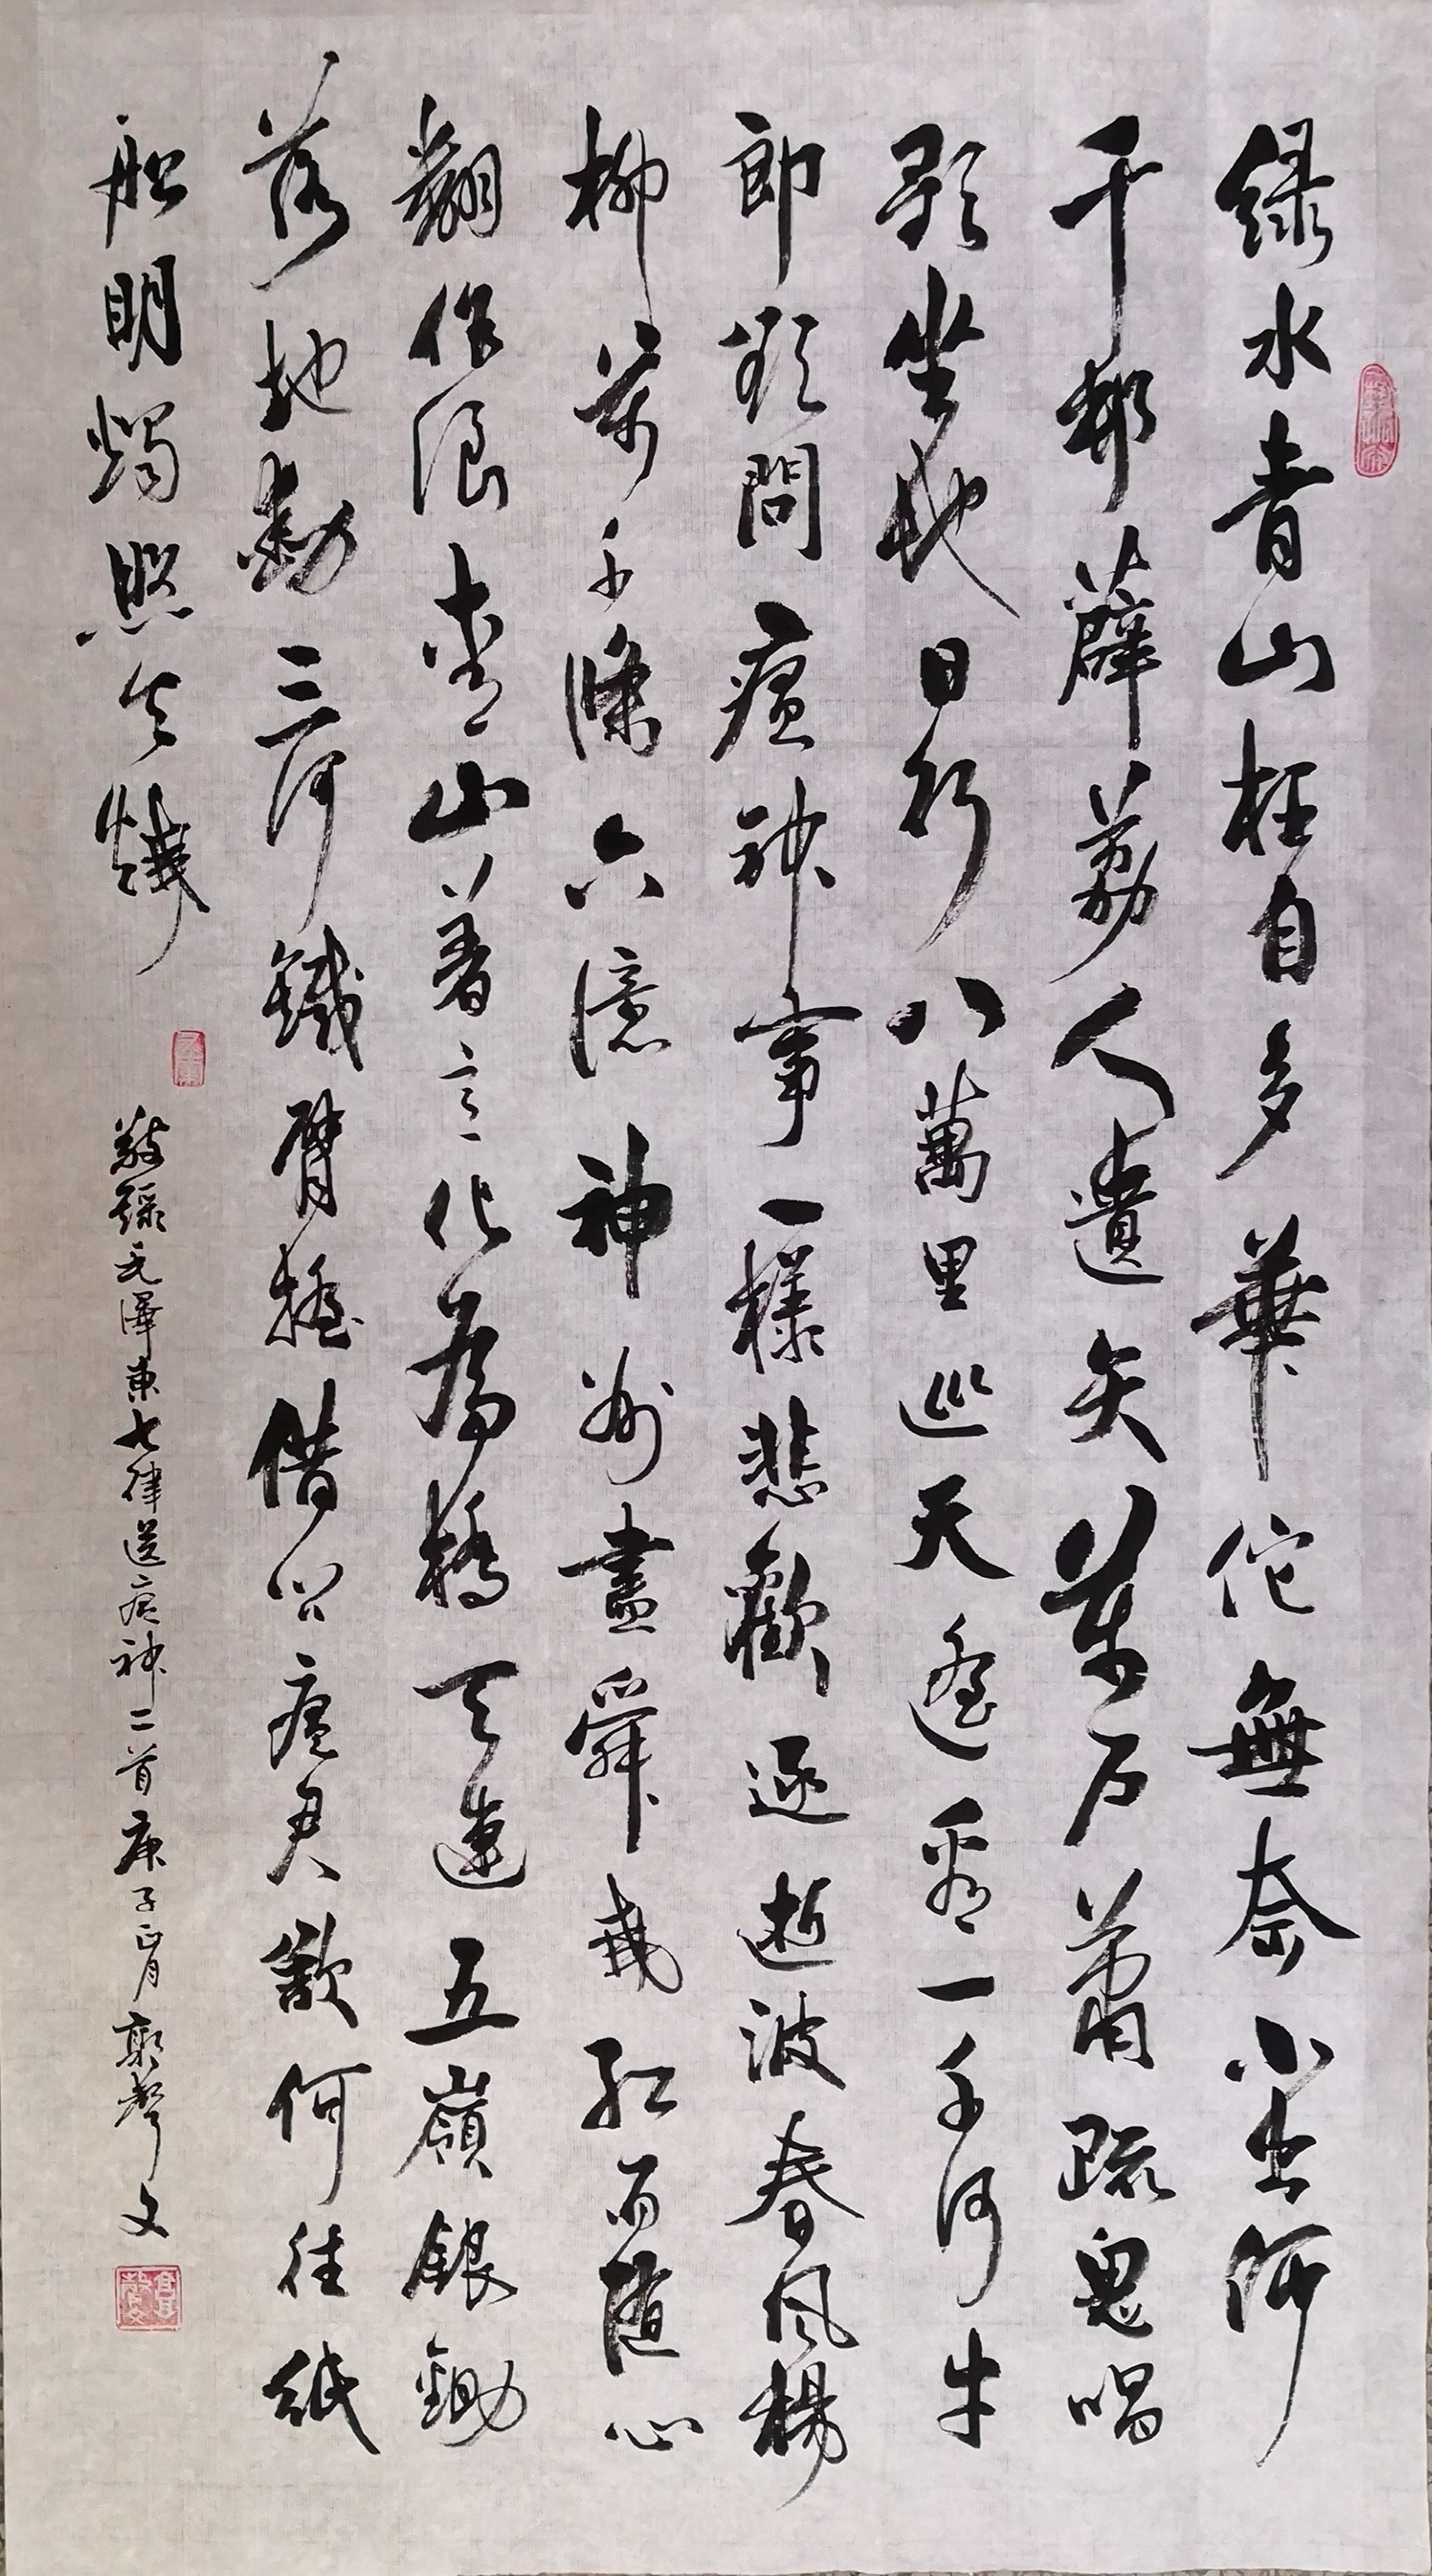 綠水青山枉自多華佗無奈小虫何
千邨薜荔人遺矢萬户蕭疏鬼唱
歌坐地日行八萬里巡天遙看一千河牛
郎欲問瘟神事一樣悲歡逐逝波春風楊
柳萬千條六億神州盡舜堯紅雨隨心
翻作浪青山着意化為橋天連五嶺銀鋤
落地動三河鐵臂搖借問瘟君欲何往紙
船明燭照天燒
敬錄毛澤東七律送瘟神二首庚子正月郭聲文